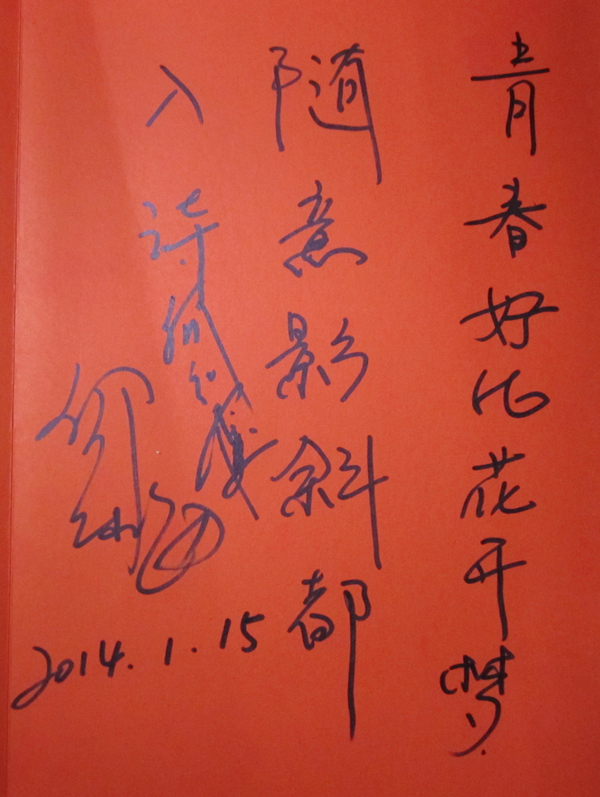 青春好比花开梦
随意影斜都
入诗
2014.1.15